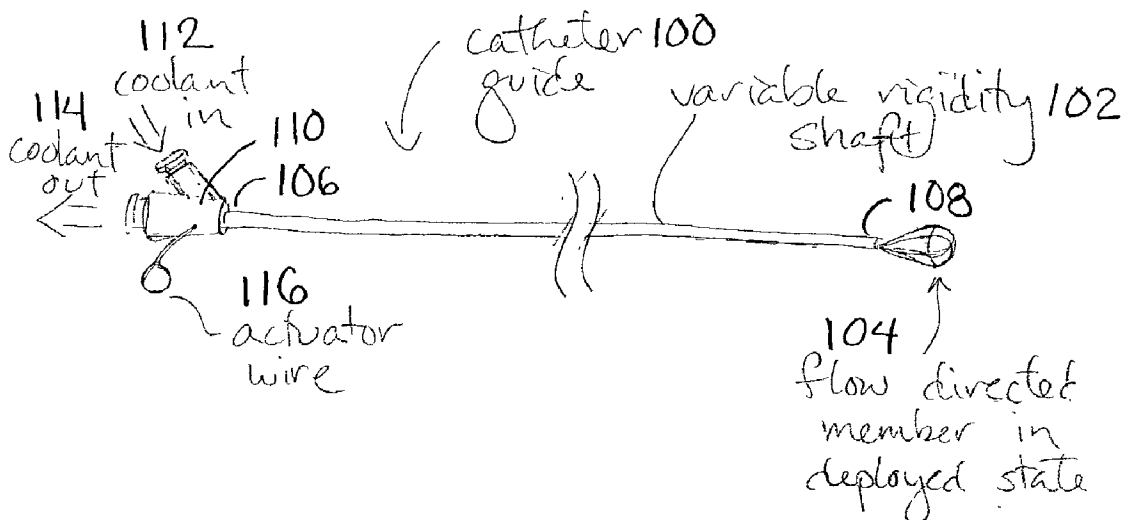 112
coolant
in
114
coolant
out
110
106
catheter 100
guide
variable rigidity 102
shaft
108
116
actuator
wire
104
flow directed
member in
deployed state